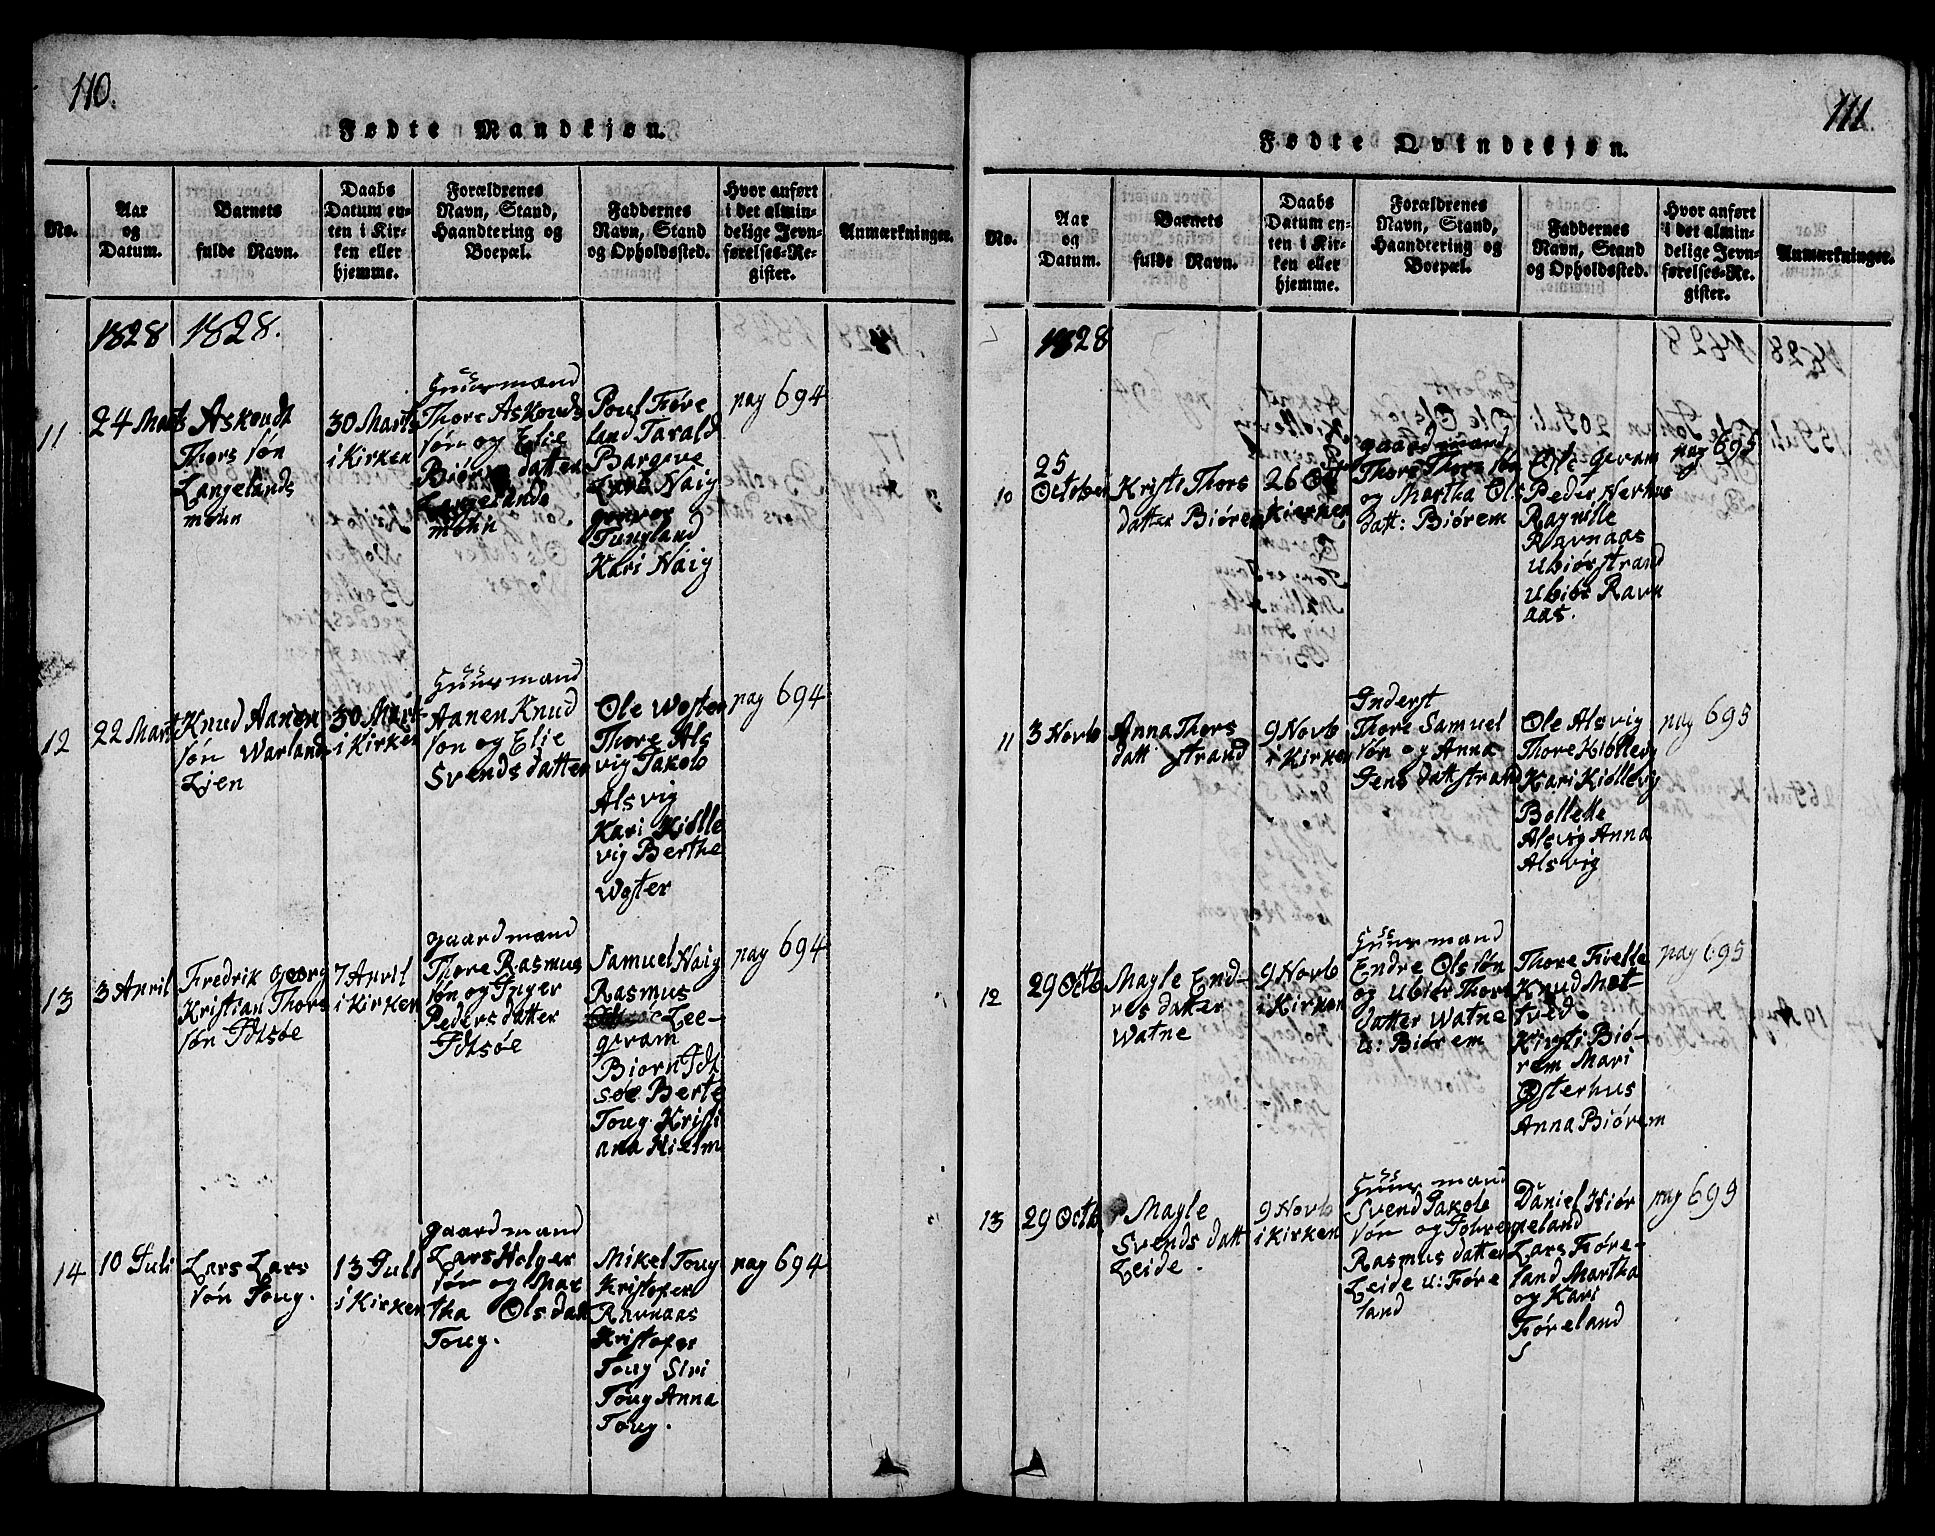 110.
Fødte Mandkjøn.
No.
Aar
og
Datum.
Barnets
fulde Navn.
Daabs
Datum en-
ten i Kir-
ken eller
hjemme.
Forældrenes
Navn, Stand,
Haandtering og
Boepæl.
Faddernes
Navn, Stand
og Opholdssted.
Hvor anført
i det almin-
delige Jevn-
førelses-Re-
gister.
Anmærkninger.
1828
1828.
11
24 Marts
Askoudt
Thors søn
Langelands
moen
30 Marts
i Kirken
Huusmand
Thore Askouds
søn og Elie
Biørns datter
Langelands
moen
Poul Føre
land Tarald
Bargeve
Lars Haig
Tungland
Kari Haig
pag 694
12
22 Mart
Knud Aanen
søn Warland
Lien
30 Mart
i Kirken
Huusmand
Aanen Knud
søn og Elie
Svends datter
Ole Woster
Thore Als
vig Jakob
Alsvig
Kari Kiølle
vig Berthe
Woster
pag 694
13
3 April
Fredrik Georg
Kristian Thors
søn Idsøe
7 April
i Kirken
gaardmand
Thore Rasmus
søn og Inger
Peders datter
Idsøe
Samuel Haig
Rasmus
Lee-
gvam
Biørn Idt
søe Berte
Toug Kristi
ana Hielm
pag 694
14
10 Juli
Lars Lars
søn Toug.
13 Juli
i Kirken
gaardmand
Lars Holger
søn og Mar
tha Ols dat
Toug.
Mikel Toug
Kristofer
Ravnaas
Kristofer
Toug Siri
Toug Anna
Toug.
pag 694
111.
Fødte Qvindekjøn.
No.
Aar
og
Datum.
Barnets
fulde Navn.
Daabs
Datum en-
ten i Kir-
ken eller
hjemme.
Forældrenes
Navn, Stand,
Haandtering og
Boepæl.
Faddernes
Navn, Stand
og Opholdssted.
Hvor anført
i det almin-
delige Jevn-
førelses-Re-
gister.
Anmærkninger.
1828
10
25
October
Kristi Thors
datter Biørem
26 Oct
Kierken
gaardmand
Thore Thors søn
og Martha Ols
datt: Biørem
Ole qvam
Peder Nerhus
Ragnille
Ravnaas
Ubiør strand
Ubiør Ravn
aas.
pag 695
11
3 Novb
Anna Thors
datt strand
9 Novb
i Kirken
Inderst
Thore Samuel
søn og Anna
Jens datt strand
Ole Alsvig
Thore Kiøllevig
Kari Kiøllevig
Bollette
Alsvig Anna
Alsvig
pag 695
12
29 Octb
Magle End-
res datter
Watne
9 Novb
i Kirken
Huusmand
Endre Ols søn
og Ubiør Thors
datter Watne
u: Biørem
Thore Fivelle
Knud Møt-
tved
Kirsti Biø-
rem Mari
Østerhus
Anna Biørem
pag 695
13
29 Octb
Magle
Svends datt
Leide.
9 Novb
i Kirken
Huusmand
Svend Jakob
søn og
Rasmus datter
Leide u: Føre
land
Daniel Hiør
eland
Lars Føre-
land Martha
og Kari
Føreland
pag 699